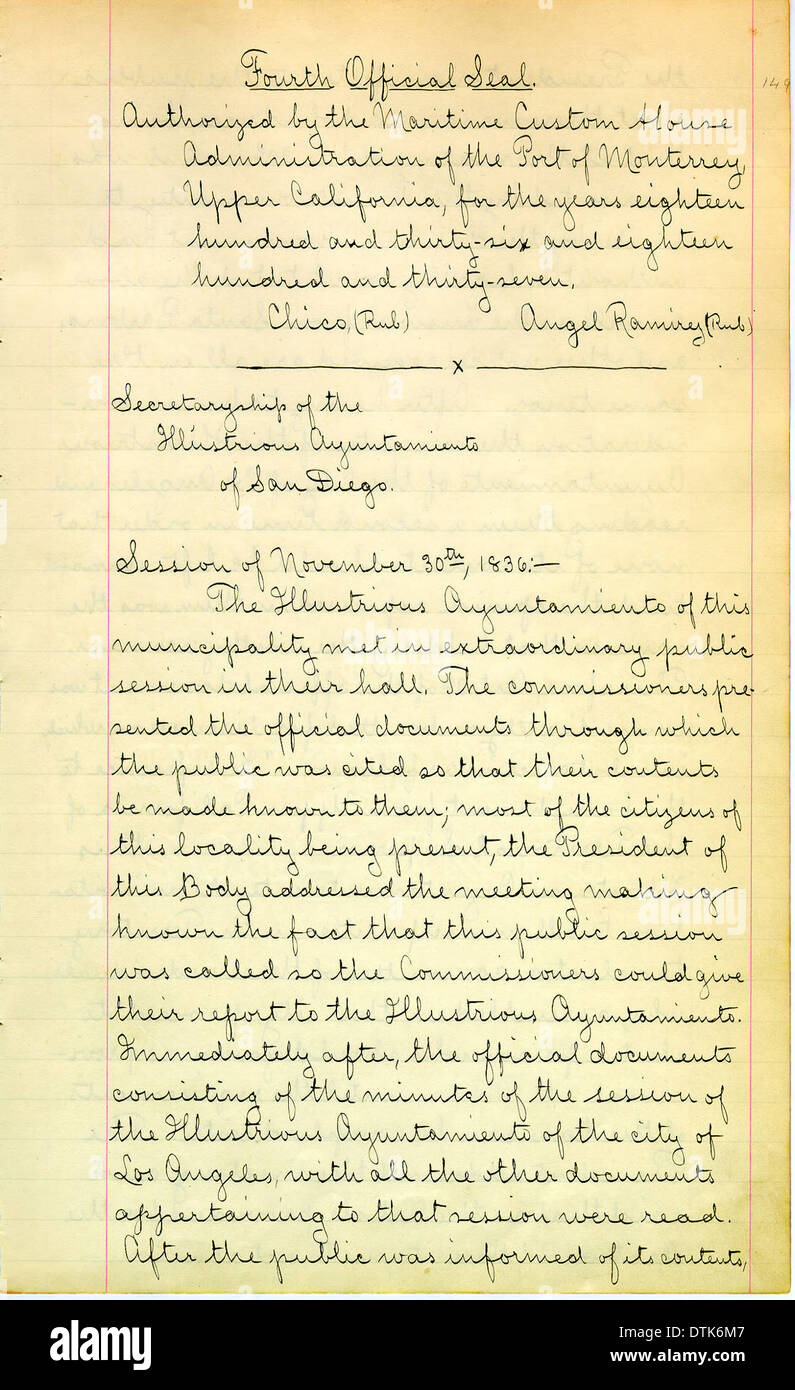 Fourth Official Seal.
149
Authorized by the Maritime Custom House
Administration of the Port of Monterrey,
Upper California, for the years eighteen
hundred and thirty-six and eighteen
hundred and thirty-seven.
Chico, (Rub) Angel Ramirez (Rub)
x
Secretaryship of the
Illustrious Ayuntamiento
of San Diego.
Session of November 30th, 1836:—
The Illustrious Ayuntamiento of this
municipality met in extraordinary public
session in their hall. The commissioners pre-
sented the official documents through which
the public was cited so that their contents
be made known to them; most of the citizens of
this locality being present, the President of
this Body addressed the meeting making
known the fact that this public session
was called so the Commissioners could give
their report to the Illustrious Ayuntamiento.
Immediately after, the official documents
consisting of the minutes of the session of
the Illustrious Ayuntamiento of the city of
Los Angeles, with all the other documents
appertaining to that session were read.
After the public was informed of its contents,
alamy
Image ID: DTK6M7
www.alamy.com